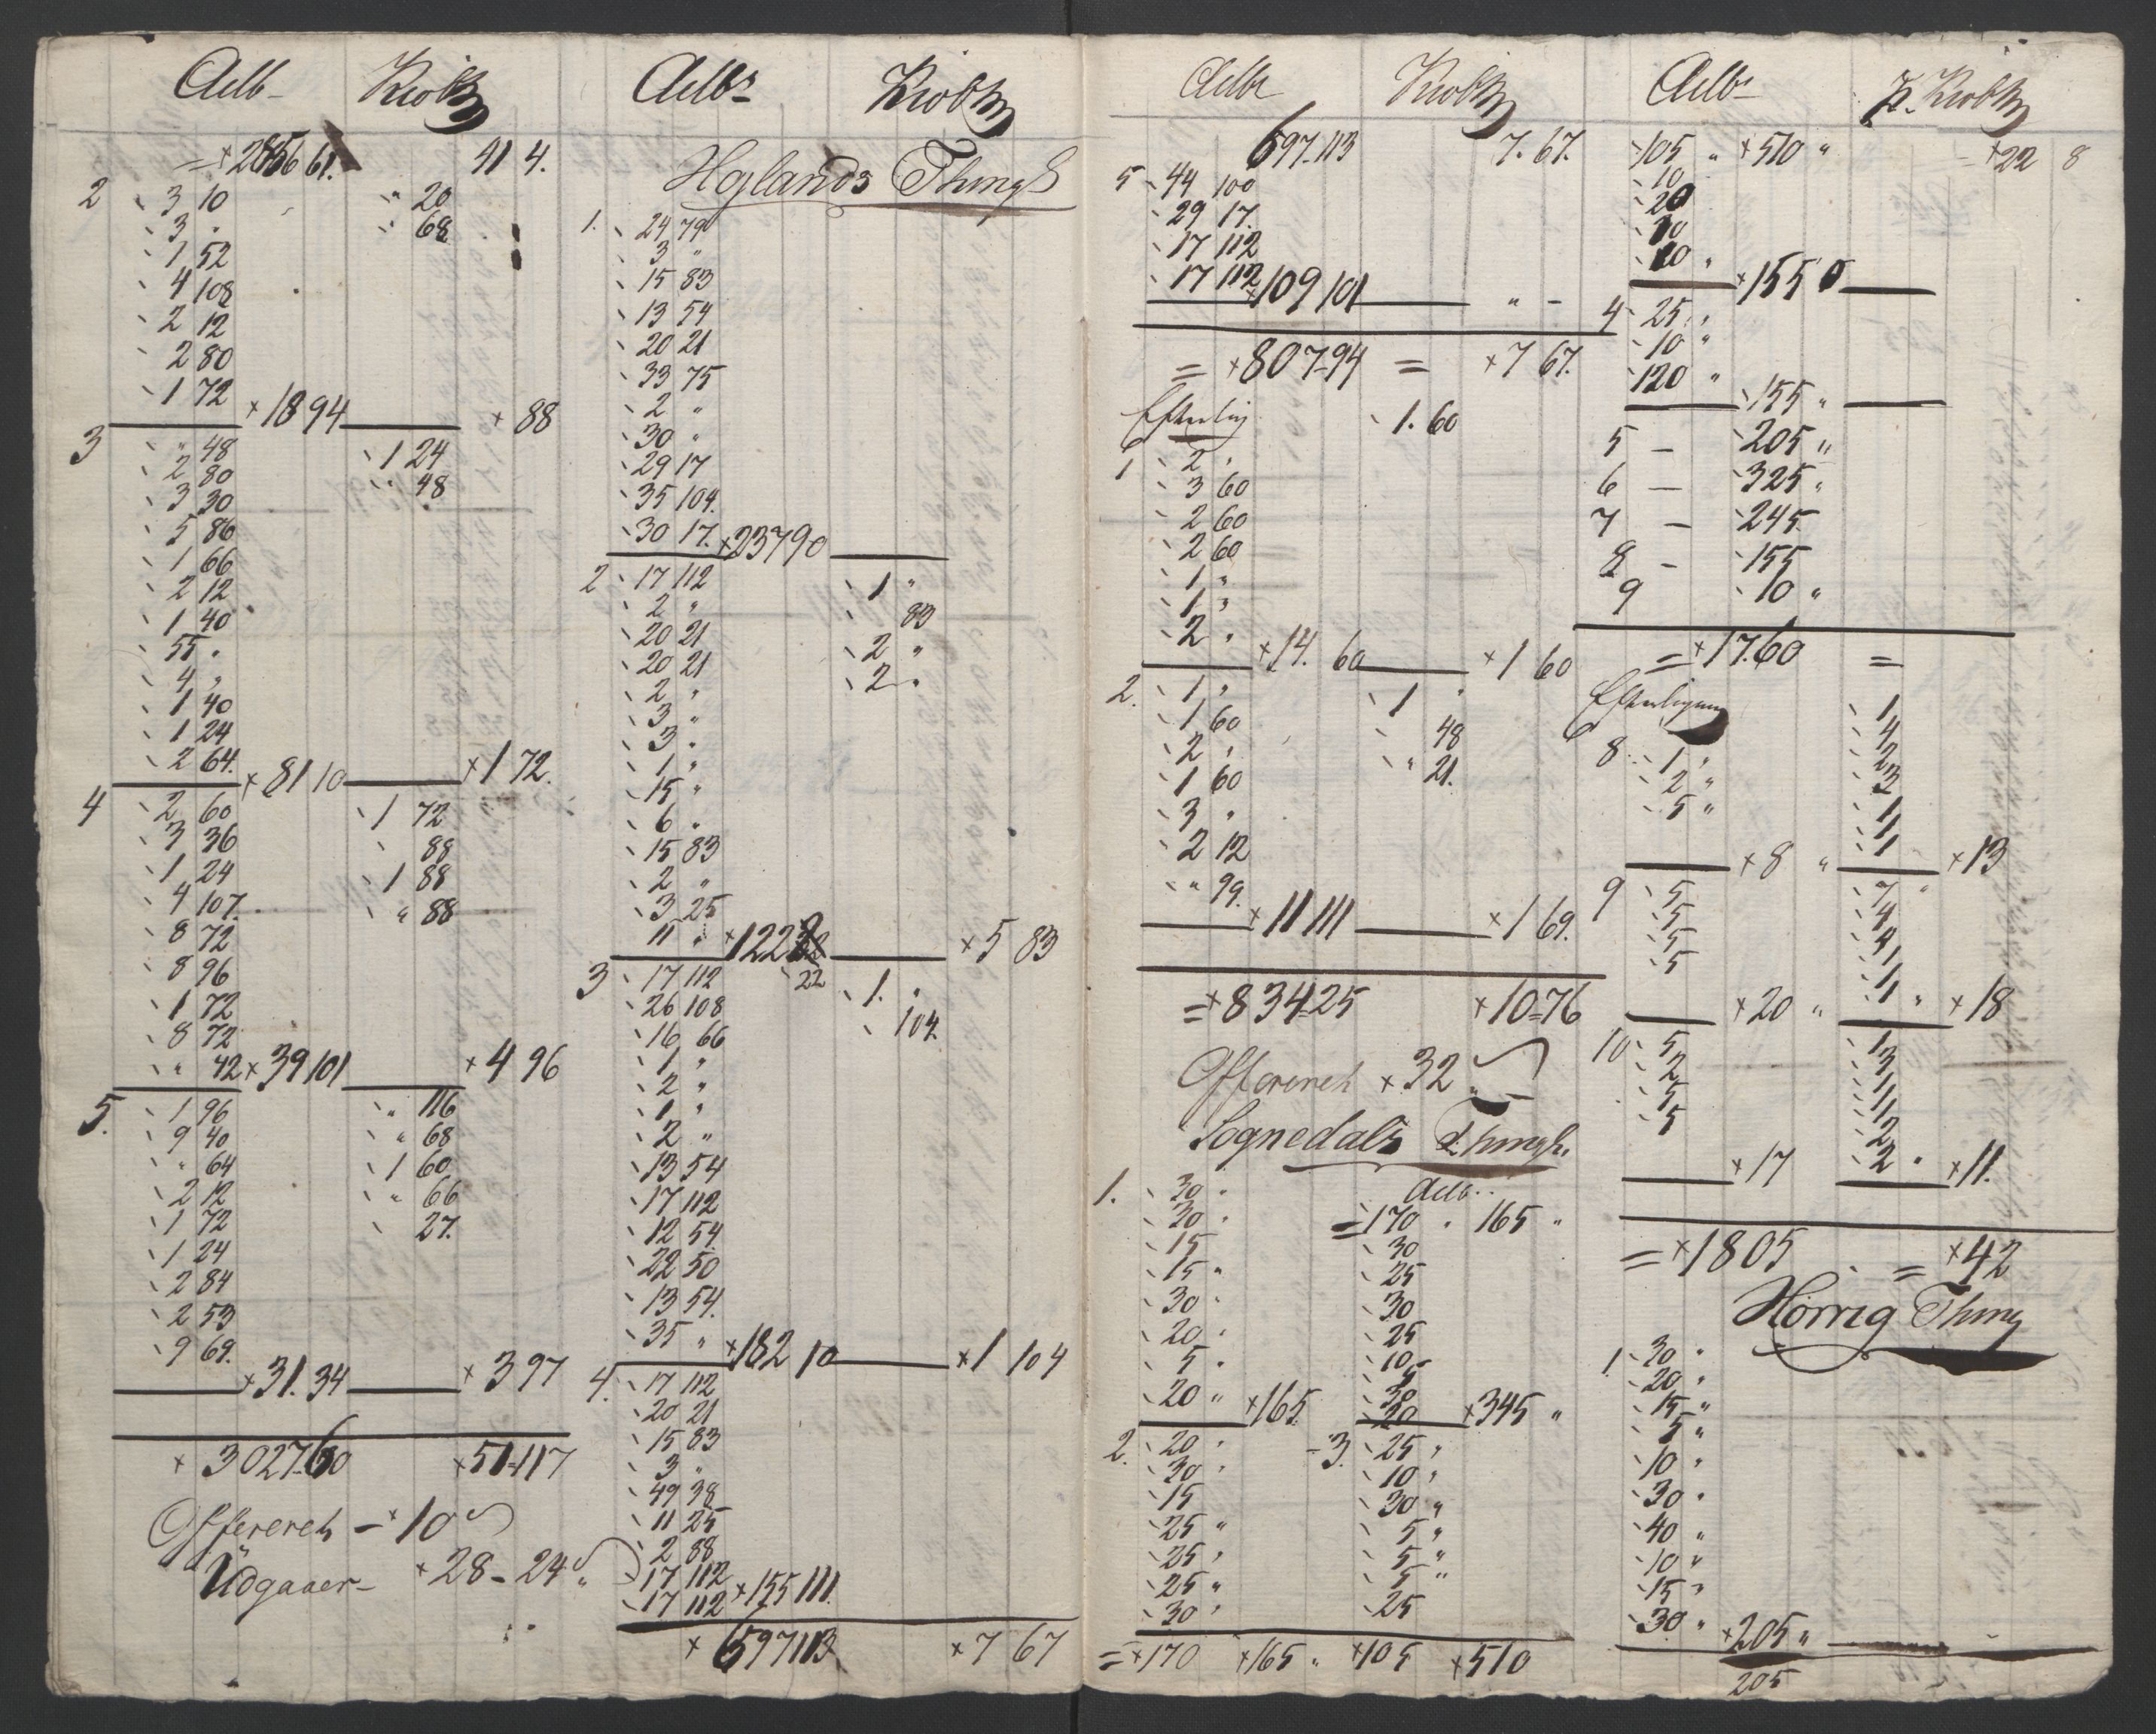 Aelb- Kiobm
= +2856 61. 41 4.
2 3 10 " 20
3 " " 68
1 52
4 108
2 12
2 80
1 72 +18 94 + 88
3 " 48 1 24
2 80 " 48
3 30
5 86
1 66
2 12
1 40
55 "
4 "
1 40
1 24
2 64. +81 10 +1 72.
4 2 60 1 72
3 36 88
1 24 1 88
4 107. " 88
8 72
8 96
1 72
8 72
" 42 +39 101 +4 96
5. 1 96 " 116
9 40 " 68
" 64 1 60
2 12 " 66
1 72 27.
1 24
2 84
2 53
9 69.
+31. 34 +3 97
+ 3027-60 +51-117
Offereret - +10
Udgaaer- +28-24 "
Aelbr Kiobm
Hoglands Thing
1. 24 79
3 "
15 83
13 54
20 21
33 75
2 "
30 "
29 17
35 104.
30 17. +237 90
2 17 112 1 "
2 " 83
20 21 2 "
20 21 2 "
2 "
3 "
3 "
1 "
15 "
6 "
15 83
2 "
3 25
11 " +122 +5 83
3 17 112 22 1. "
26 108 104
16 66
1 "
2 "
1 "
2 "
13 54
17 112
12 54
22 50
13 54.
35 " +182 10 +1 104
4. 17 112
20 21
15 83
3 "
49 38
11 25
2 88
17 112
17 112 +155 111.
+ 597 113. +7 67
Aelbr Kiobm
697-113 7. 67.
5 44 100
29 17.
17 112
17 112 +109 101 " -
= +807-94 = +7 67.
1. 60
1 2 "
3 60
2 60
2 60
1 "
1 "
2 " +14. 60 +1 60
2. 1 " 1 "
1 60 48
2 " " 21.
1 60
3 "
2 12
" 99.
+11 111 +1 69.
= +834-25 +10-76
Offereret +32 "
Sognedals Thingl.
1. 30 " Aelb..
20 " =170 " 165 "
15 30
15 " 25
30 " 30
20 " 25
5 " 10
20 " +165. 30
20 +345 "
2. 20 " -3. 25 "
30 " 10 "
15 30 "
25 " 5 "
25 " 5 "
25 " 5 "
30 " 25
= +170 +165 " +105 +510
Aelbr Kiobm
105 " +510 " +22 8
10
20
10
10 " +155
4 25 "
10 "
120 " 155 "
5 - 205 "
6 - 325 "
7 - 245
8 - 155
9 10 "
= +1760 =
1
4
8 1 " 2
2 " 3
5 " 1
1
1
+8 " +13
9 5 7 "
5 4
5 4
5 1
1 "
+20 " +18
10 5 1
2 3
5 1
5 1
2
2 "
+17 +11.
= +1805 = +42
Hörrig Thing
1. 30 "
20 "
15 "
5 "
10 "
30 "
40 "
10 "
15 "
30 " +205 "
205